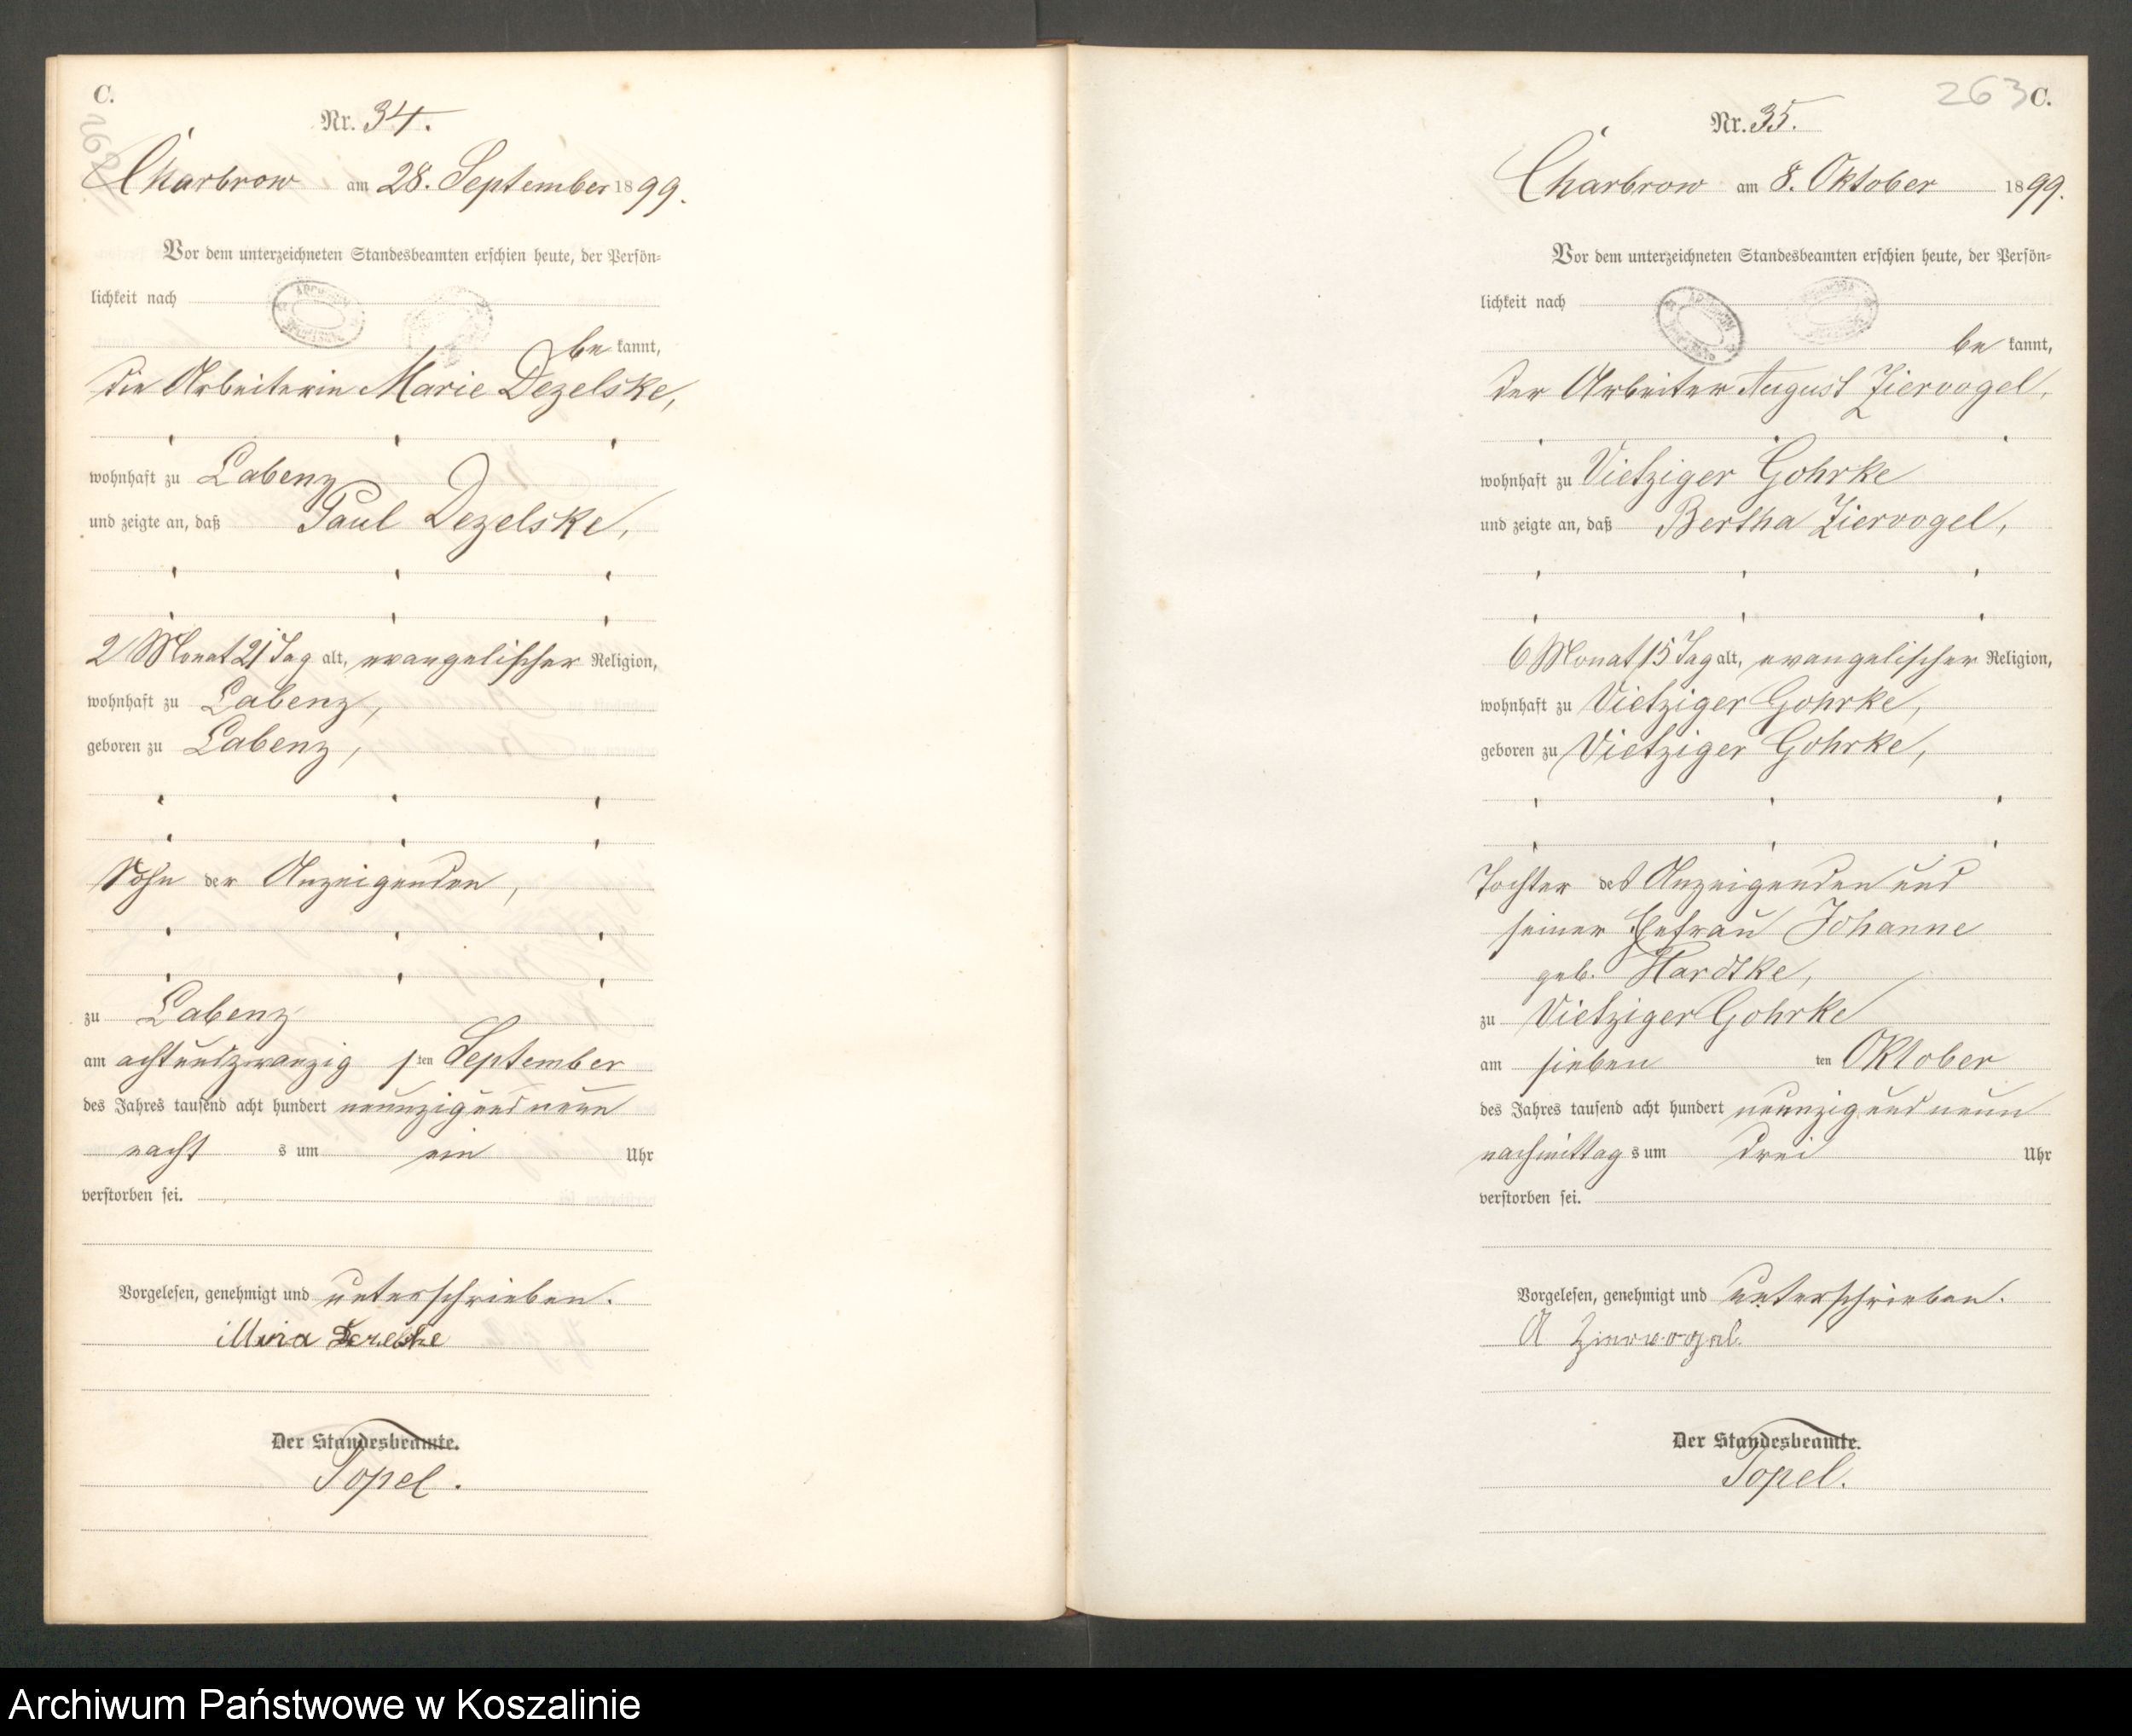 C.
262
Nr. 34.
Charbrow am 28. September 1899.
Vor dem unterzeichneten Standesbeamten erschien heute, der Persön-
lichkeit nach
be kannt,
die Arbeiterin Marie Dezelske,
wohnhaft zu Labenz
und zeigte an, daß Paul Dezelske,
2 Monat 21 Tag alt, evangelischer Religion,
wohnhaft zu Labenz,
geboren zu Labenz,
Sohn der Anzeigenden,
zu Labenz
am achtundzwanzig sten September
des Jahres tausend acht hundert neunzig und neun
nacht s um ein Uhr
verstorben sei.
Vorgelesen, genehmigt und unterschrieben.
Der Standesbeamte.
Topel.
263 C.
Nr. 35.
Charbrow am 8. Oktober 1899.
Vor dem unterzeichneten Standesbeamten erschien heute, der Persön-
lichkeit nach
be kannt,
der Arbeiter August Ziervogel,
wohnhaft zu Vietziger Gohrke
und zeigte an, daß Bertha Ziervogel,
6 Monat 15 Tag alt, evangelischer Religion,
wohnhaft zu Vietziger Gohrke,
geboren zu Vietziger Gohrke,
Tochter des Anzeigenden und
seiner Ehefrau Johanne
geb. Hardtke,
zu Vietziger Gohrke
am sieben ten Oktober
des Jahres tausend acht hundert neunzig und neun
nachmittag s um drei Uhr
verstorben sei.
Vorgelesen, genehmigt und unterschrieben.
A Ziervogel.
Der Standesbeamte.
Topel.
Archiwum Państwowe w Koszalinie